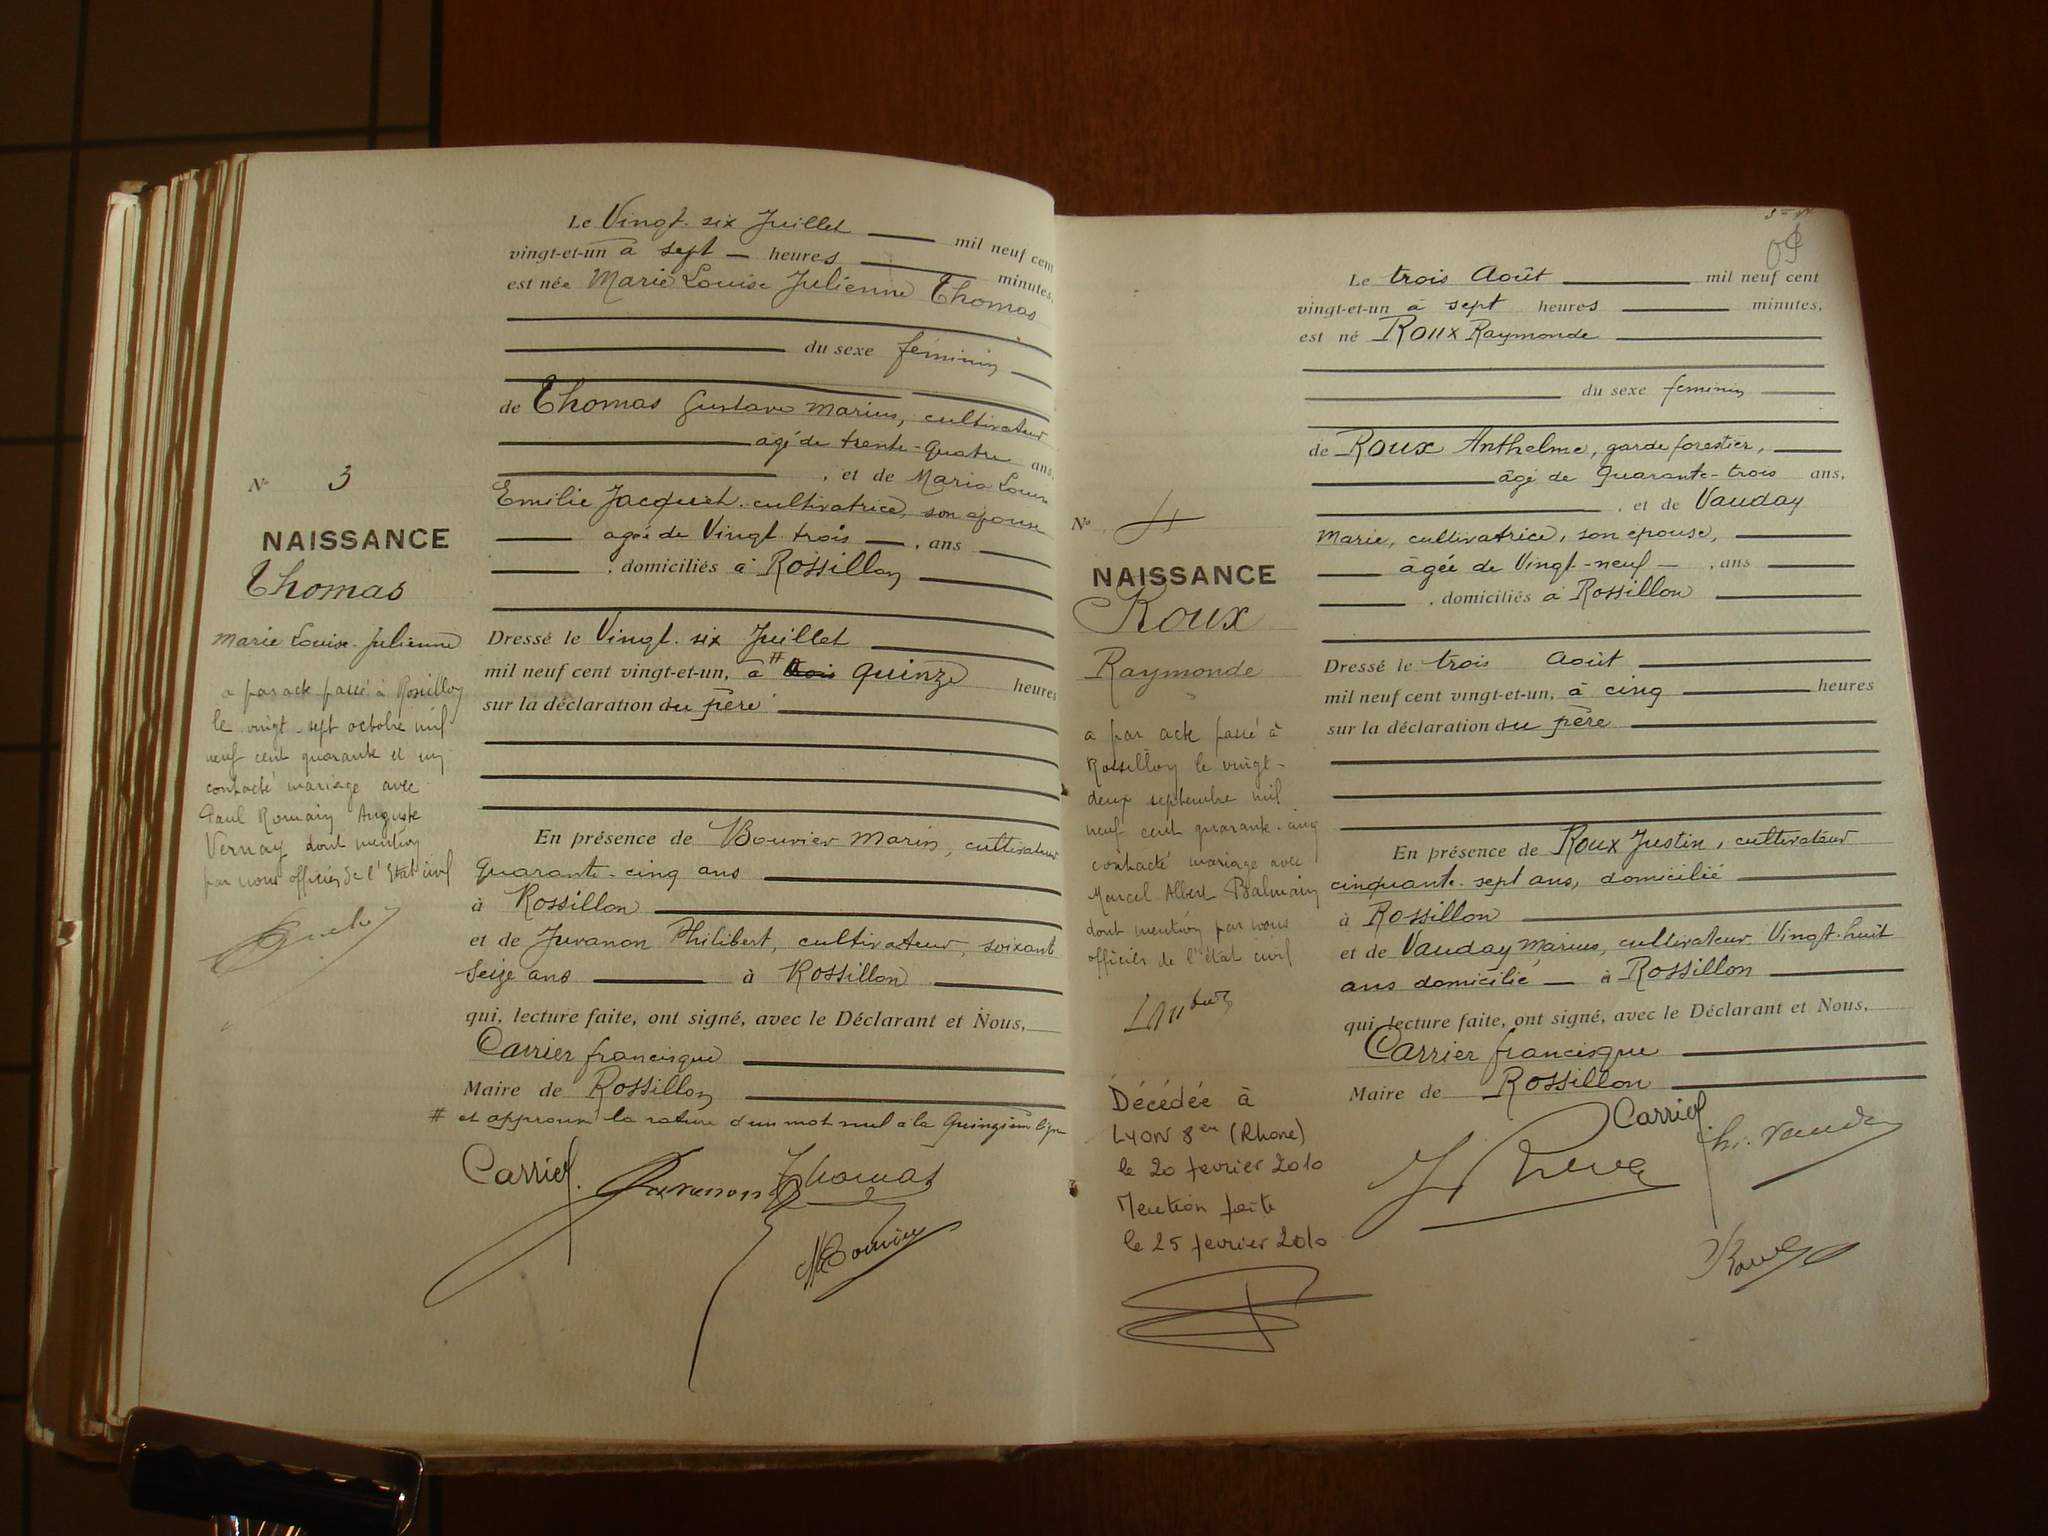 Le Vingt-six Juillet mil neuf cent
vingt-et-un à sept heures minutes,
est née Marie Louise Julienne Thomas
du sexe féminin
de Thomas Gustave Marius, cultivateur
âgé de trente-quatre ans,
, et de Marie Louise
Emilie Jacquet, cultivatrice, son épouse
agée de Vingt trois , ans
, domiciliés à Rossillon
Dressé le Vingt-six Juillet
mil neuf cent vingt-et-un, à # trois quinze heures
sur la déclaration du père
En présence de Bouvier Marin, cultivateur
quarante-cinq ans
à Rossillon
et de Juvanon Philibert, cultivateur, soixante
seize ans à Rossillon
qui, lecture faite, ont signé, avec le Déclarant et Nous,
Carrier francisque
Maire de Rossillon
# et approuvé la rature d'un mot nul à la quinzième ligne
Carrier Juvanon Thomas
M Bouvier
N° 3
NAISSANCE
Thomas
Marie Louise Julienne
a par acte passé à Rossillon
le vingt-sept octobre mil
neuf cent quarante et un
contracté mariage avec
Paul Romain Auguste
Vernay dont mention
par nous officier de l'Etat civil
Le trois Août mil neuf cent
vingt-et-un à sept heures minutes,
est né Roux Raymonde
du sexe feminin
de Roux Anthelme, garde forestier,
âgé de quarante-trois ans,
, et de Vauday
Marie, cultivatrice, son epouse,
âgée de Vingt-neuf , ans
, domiciliés à Rossillon
Dressé le trois Août
mil neuf cent vingt-et-un, à cinq heures
sur la déclaration du père
En présence de Roux Justin, cultivateur
cinquante-sept ans, domicilié
à Rossillon
et de Vauday Marius, cultivateur Vingt-huit
ans domicilié à Rossillon
qui, lecture faite, ont signé, avec le Déclarant et Nous,
Carrier francisque
Maire de Rossillon
Carrier
N° 4
NAISSANCE
Roux
Raymonde
a par acte passé à
Rossillon le vingt-
deux septembre mil
neuf cent quarante-cinq
contracté mariage avec
Marcel Albert Balmain
dont mention par nous
officier de l'état civil
Décédée à
LYON 8em (Rhone)
le 20 fevrier 2010
Mention faite
le 25 fevrier 2010